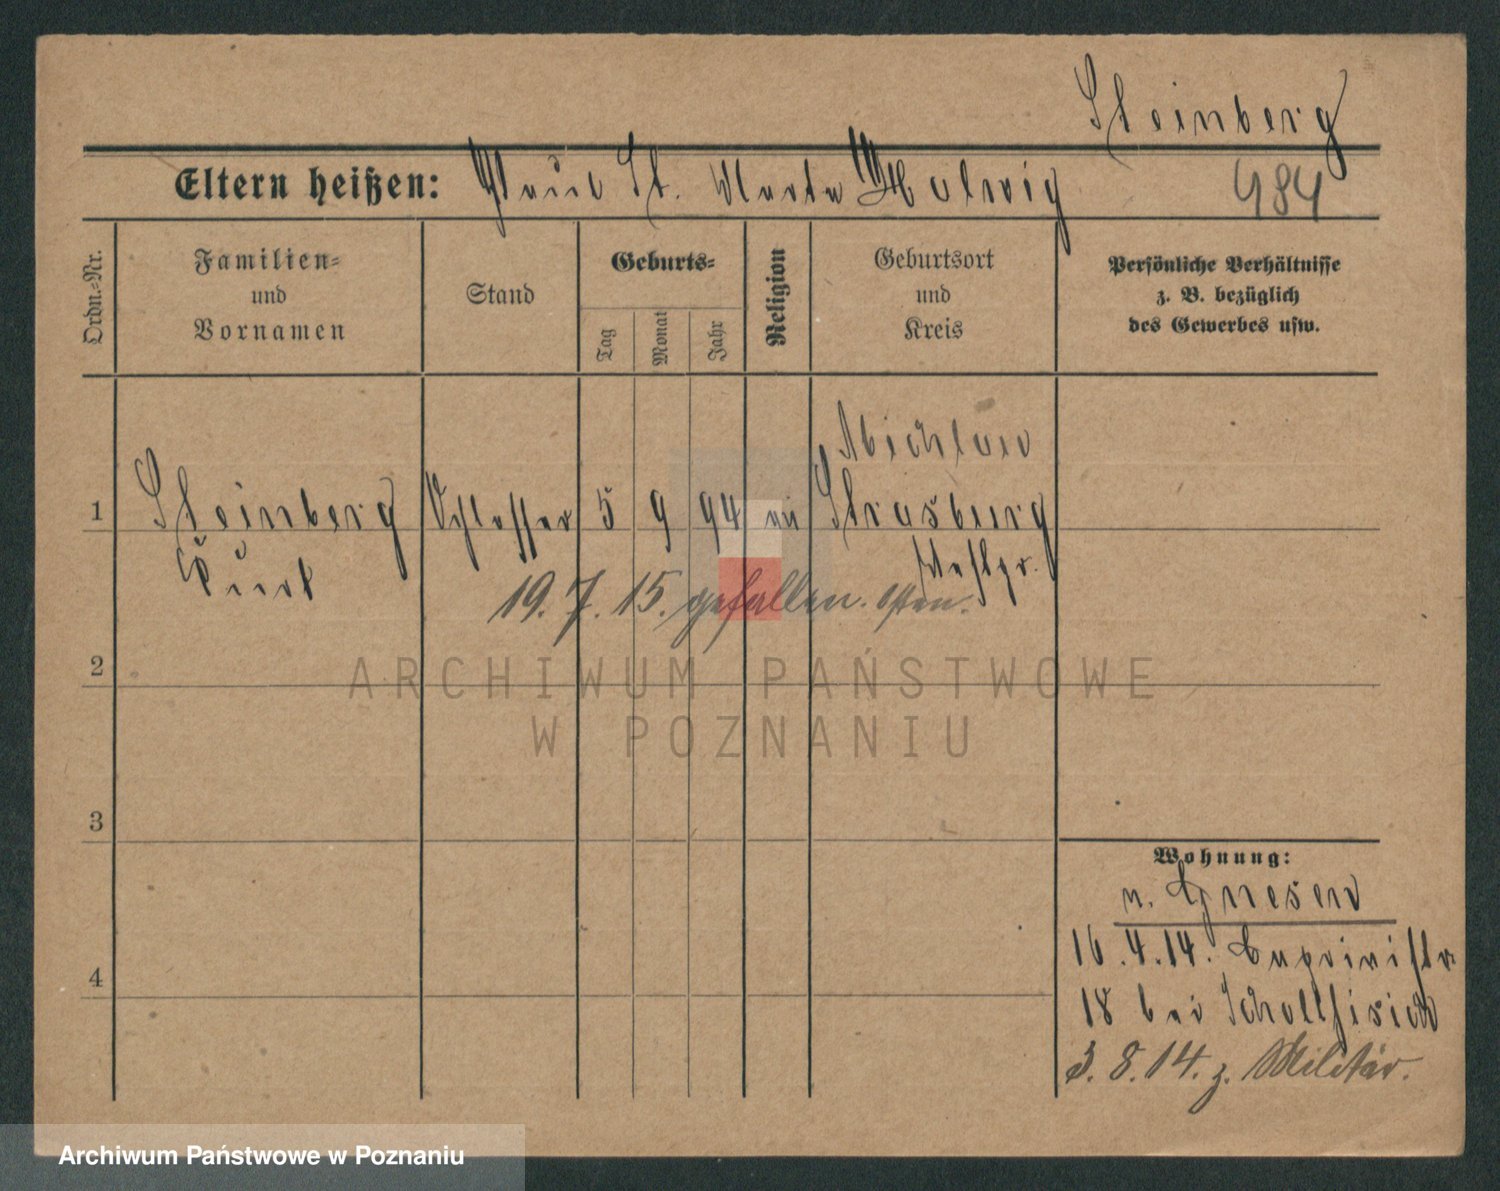 Steinberg
Eltern heißen: St. Marta Helwig 484
Ordn.-Nr.
Familien- und Vornamen
Stand
Geburts-
Tag
Monat
Jahr
Religion
Geburtsort und Kreis
Persönliche Verhältnisse z. B. bezüglich des Gewerbes usw.
Michlau
1 Steinberg Schlosser 5 9 94 Strasburg
Kurt Westpr.
19. 7. 15. gefallen. Osten.
2
3
4
Wohnung:
n. Gnesen
16.4.14.
18 bei
3. 8. 14. z. Militär.
ARCHIWUM PAŃSTWOWE
W POZNANIU
Archiwum Państwowe w Poznaniu